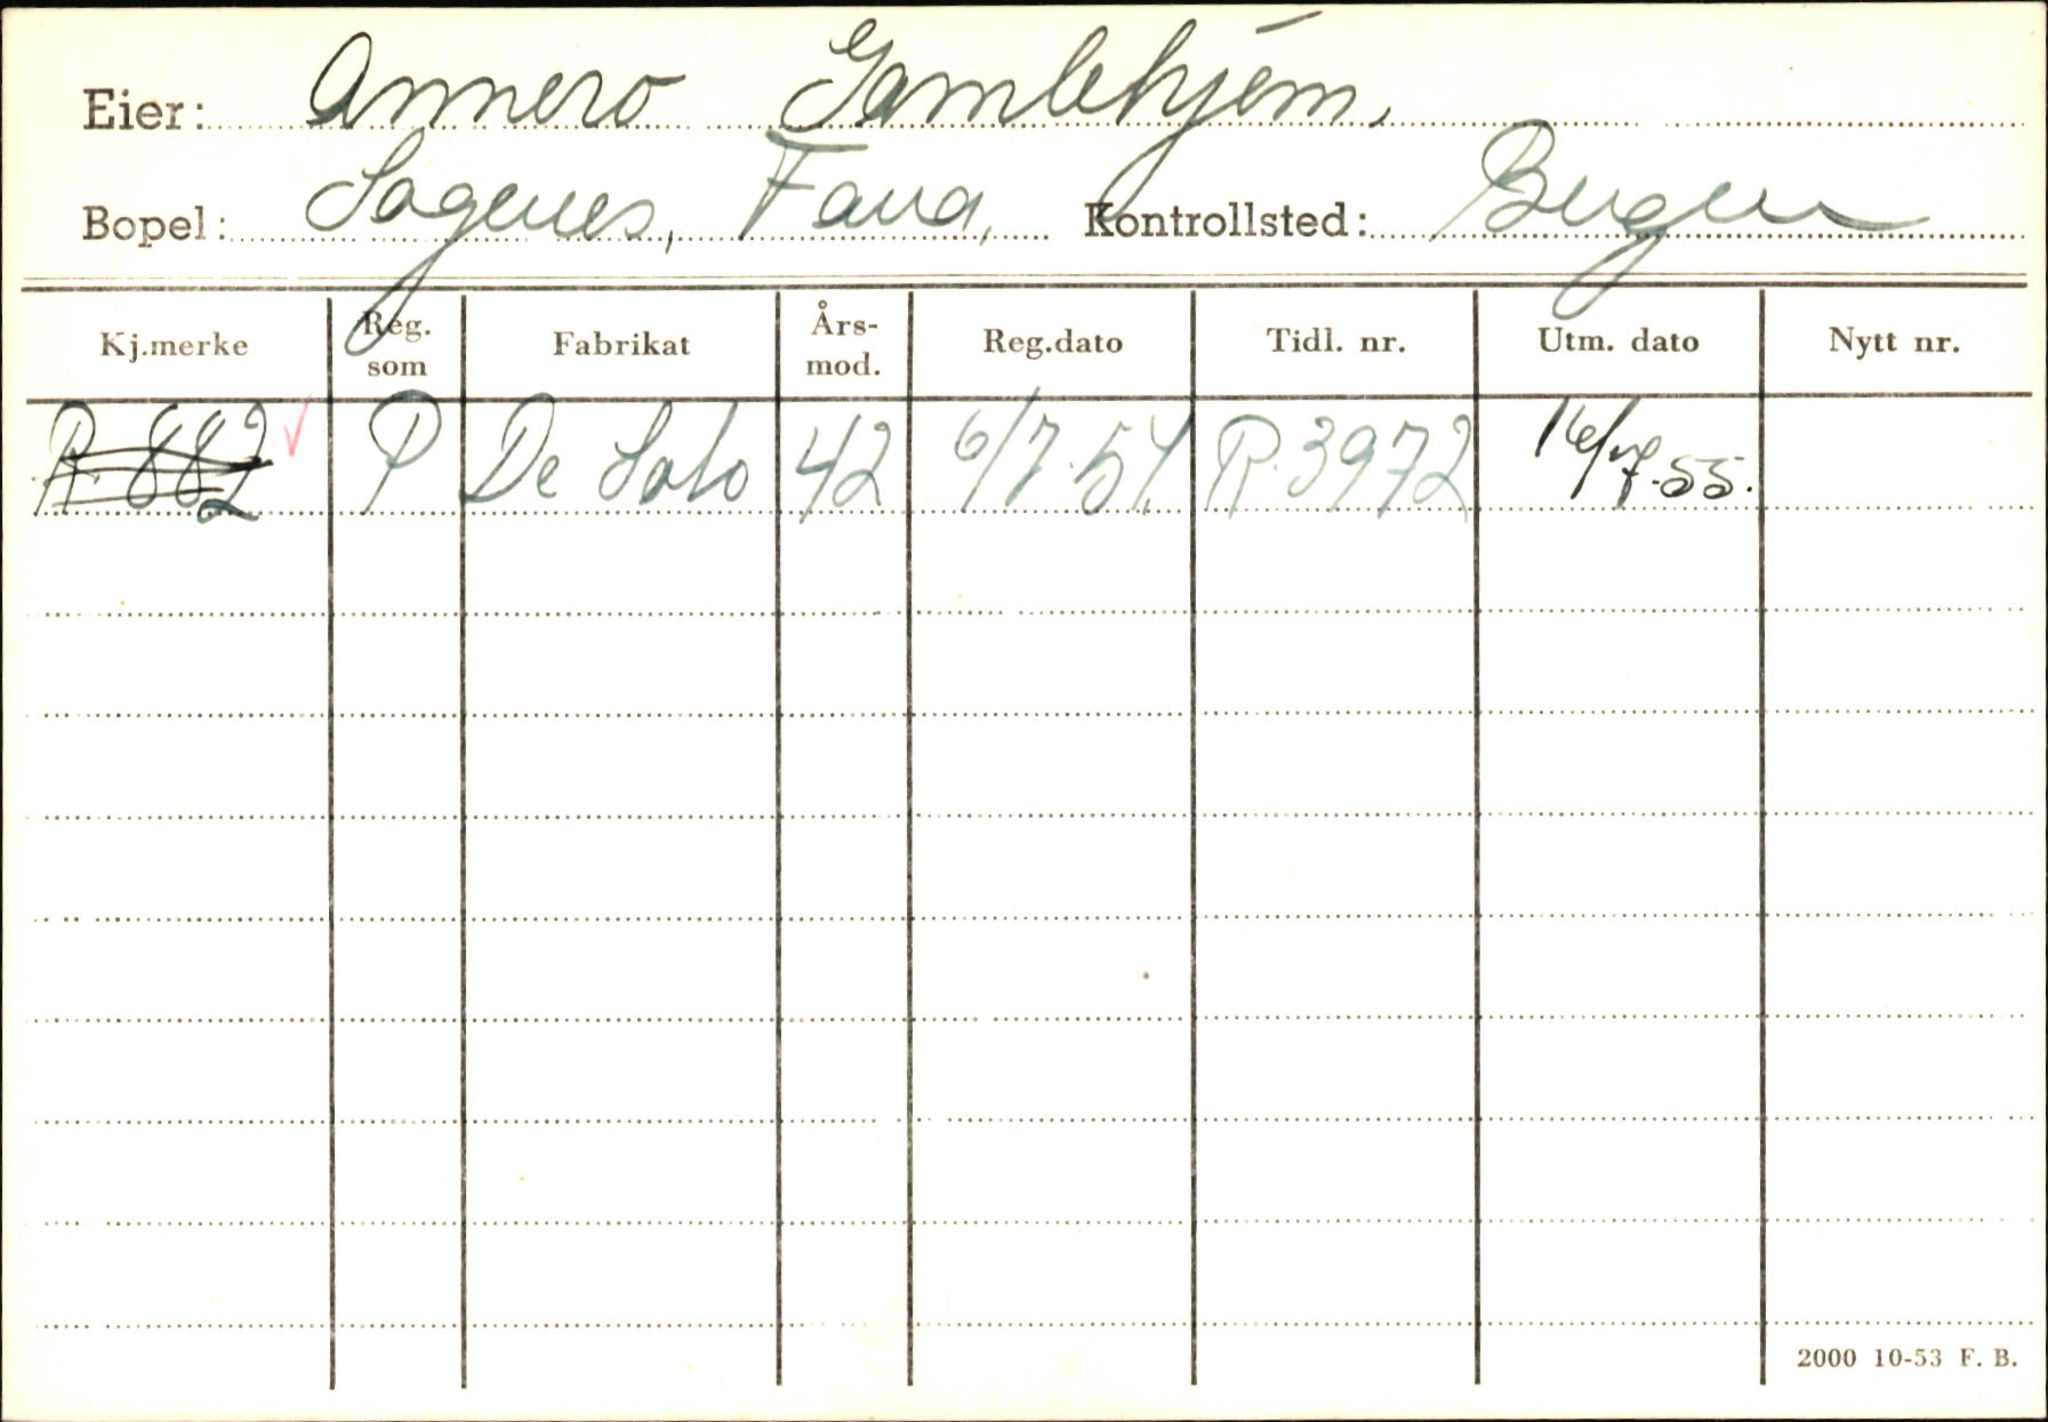 Eier: Annero Gamlehjem,
Bopel: Sagenes, Fana, Kontrollsted: Bergen
Kj.merke Reg. som Fabrikat Års-mod. Reg.dato Tidl. nr. Utm. dato Nytt nr.
R-882 P De Soto 42 6/7-54. R-3972 16/7-55.
2000 10-53 F. B.